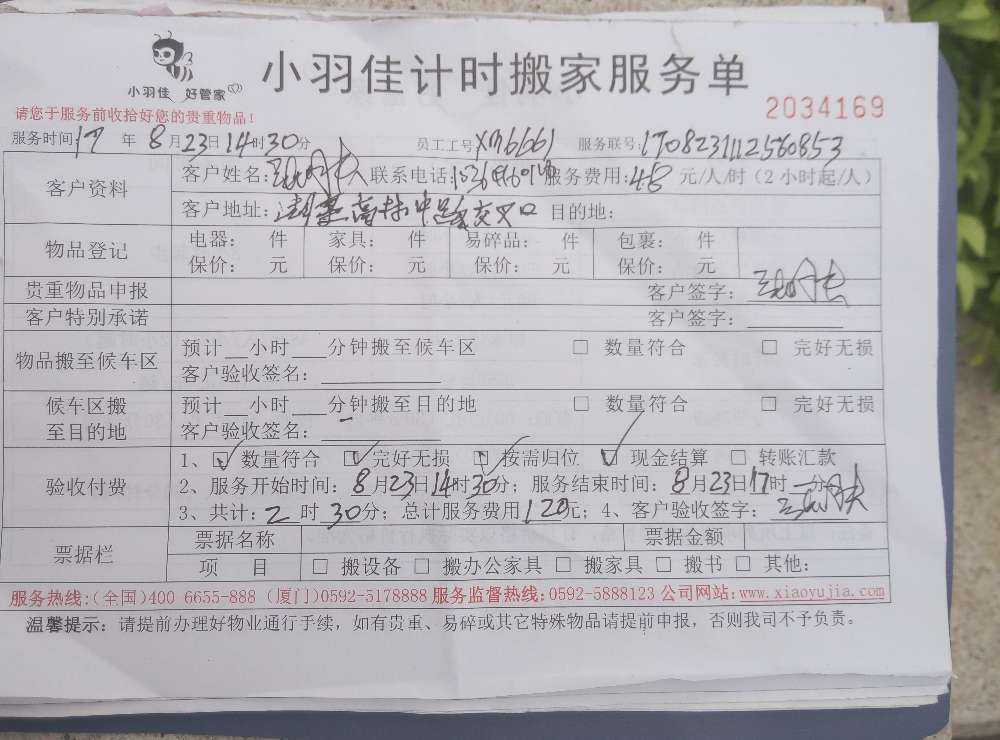 小羽佳 好管家
小羽佳计时搬家服务单
2034169
请您于服务前收拾好您的贵重物品!
服务时间:17 年 8月23日14时30分 员工工号XM6661 服务联号:1708231112580853
客户资料
客户姓名: 联系电话: 服务费用:48 元/人/时(2小时起/人)
客户地址: 高林中路交叉口 目的地:
物品登记
电器: 件 家具: 件 易碎品: 件 包裹: 件
保价: 元 保价: 元 保价: 元 保价: 元
贵重物品申报 客户签字:
客户特别承诺 客户签字:
物品搬至候车区
预计__小时___分钟搬至候车区 □ 数量符合 □ 完好无损
客户验收签名:
候车区搬至目的地
预计__小时___分钟搬至目的地 □ 数量符合 □ 完好无损
客户验收签名:
验收付费
1、☑ 数量符合 ☑ 完好无损 ☑ 按需归位 ☑ 现金结算 □ 转账汇款
2、服务开始时间:8月23日14时30分;服务结束时间:8月23日17时一分
3、共计:2时30分;总计服务费用120元;4、客户验收签字:
票据栏
票据名称 票据金额
项 目 □ 搬设备 □ 搬办公家具 □ 搬家具 □ 搬书 □ 其他:
服务热线:(全国)400 6655-888 (厦门)0592-5178888 服务监督热线:0592-5888123 公司网站:www.xiaoyujia.com
温馨提示:请提前办理好物业通行手续,如有贵重、易碎或其它特殊物品请提前申报,否则我司不予负责。